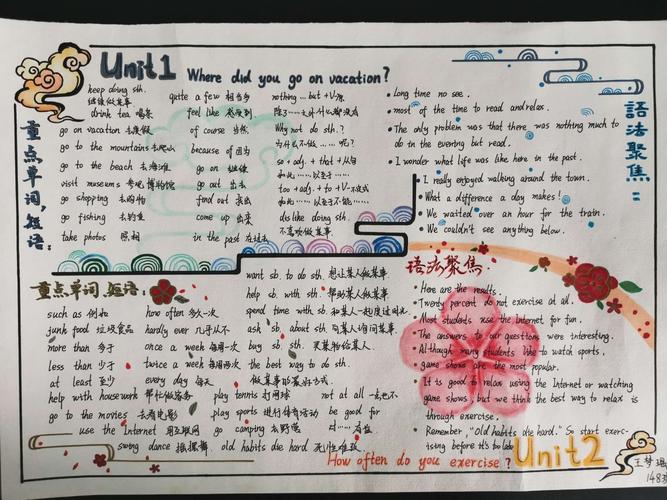 Unit1 Where did you go on vacation?
重点单词,短语:
keep doing sth.
继续做某事
drink tea 喝茶
go on vacation 去度假
go to the mountains 去爬山
go to the beach 去海滩
visit museums 参观博物馆
go shopping 去购物
go fishing 去钓鱼
take photos 照相
quite a few 相当多
feel like 感受到
of course 当然
because of 因为
go on 继续
go out 出去
find out 查出
come up 出来
in the past 在过去
nothing ... but + V-原
除了……之外什么都没有
Why not do sth.?
为什么不做……呢?
so + adj. + that +从句
如此……以至于……
too + adj. + to + V-不定式
如此……以至于不能……
dislike doing sth.
不喜欢做某事
語法聚焦:
Long time no see.
most of the time to read and relax.
The only problem was that there was nothing much to
do in the evening but read.
I wonder what life was like here in the past.
I really enjoyed walking around the town.
What a difference a day makes!
We waited over an hour for the train.
We couldn't see anything below.
重点单词、短语:
such as 例如
junk food 垃圾食品
more than 多于
less than 少于
at least 至少
help with housework 帮忙做家务
go to the movies 去看电影
use the Internet 用互联网
swing dance 摇摆舞
how often 多久一次
hardly ever 几乎从不
once a week 每周一次
twice a week 每周两次
every day 每天
play tennis 打网球
play sports 进行体育活动
go camping 去野营
old habits die hard 积习难改
want sb. to do sth. 想让某人做某事
help sb. with sth. 帮助某人做某事
spend time with sb. 和某人一起度过时光
ask sb. about sth 向某人询问某事
buy sb. sth. 买某物给某人
the best way to do sth.
做某事的最好方式
not at all 一点也不
be good for
对……有益
语法聚焦
Here are the results.
Twenty percent do not exercise at all.
Most students use the Internet for fun.
The answers to our questions were interesting.
Although many students like to watch sports,
game shows are the most popular.
It is good to relax using the Internet or watching
game shows but we think the best way to relax is
through exercise.
Remember, "Old habits die hard." So start exerc-
ising before it's too late
How often do you exercise? Unit2
王梦
148